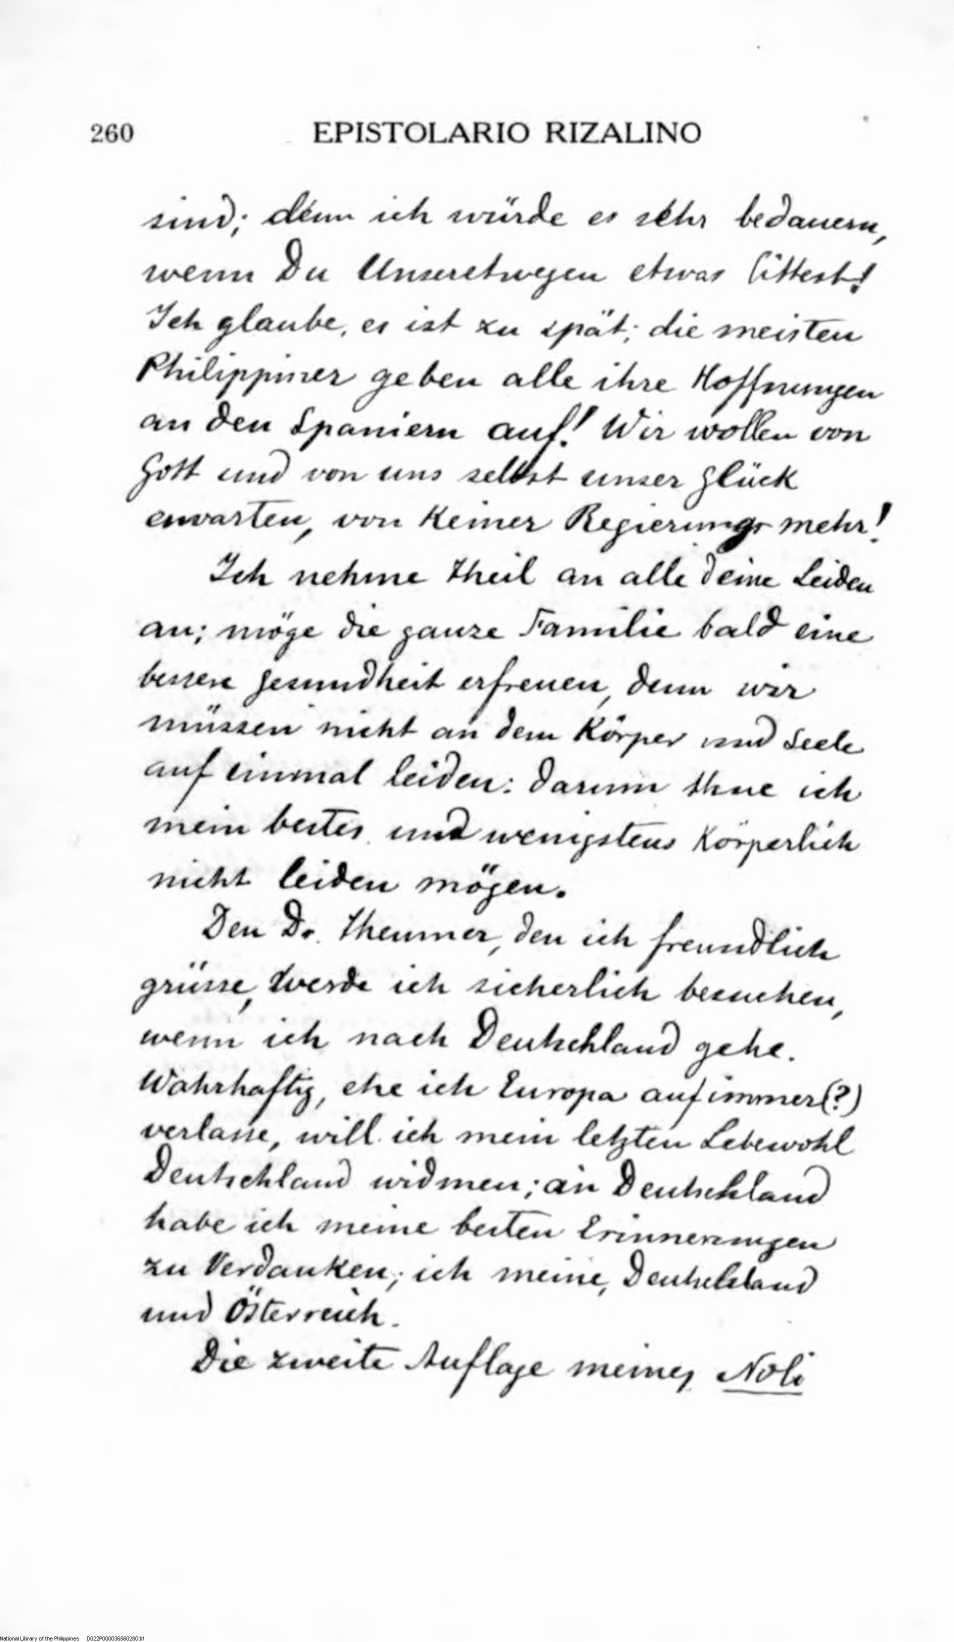 260
EPISTOLARIO RIZALINO
sind; denn ich würde es sehr bedauern,
wenn Du Unseretwegen etwas littest!
Ich glaube, es ist zu spät; die meisten
Philippiner geben alle ihre Hoffnungen
an den Spaniern auf! Wir wollen von
Gott und von uns selbst unser Glück
erwarten, von Keiner Regierung mehr!
Ich nehme theil an alle deine Leiden
an; möge die ganze Familie bald eine
bessere Gesundheit erfreuen, denn wir
müssen nicht an dem Körper und Seele
auf einmal leiden: darum thue ich
mein bestes und wenigstens Körperlich
nicht leiden mögen.
Den Dr. Theumer, den ich freundlich
grüsse, werde ich sicherlich besuchen,
wenn ich nach Deutschland gehe.
Wahrhaftig, ehe ich Europa auf immer(?)
verlasse, will ich mein letzten Lebewohl
Deutschland widmen; an Deutschland
habe ich meine besten Erinnerungen
zu Verdanken; ich meine, Deutschland
und Österreich.
Die zweite Auflage meines Noli
National Library of the Philippines